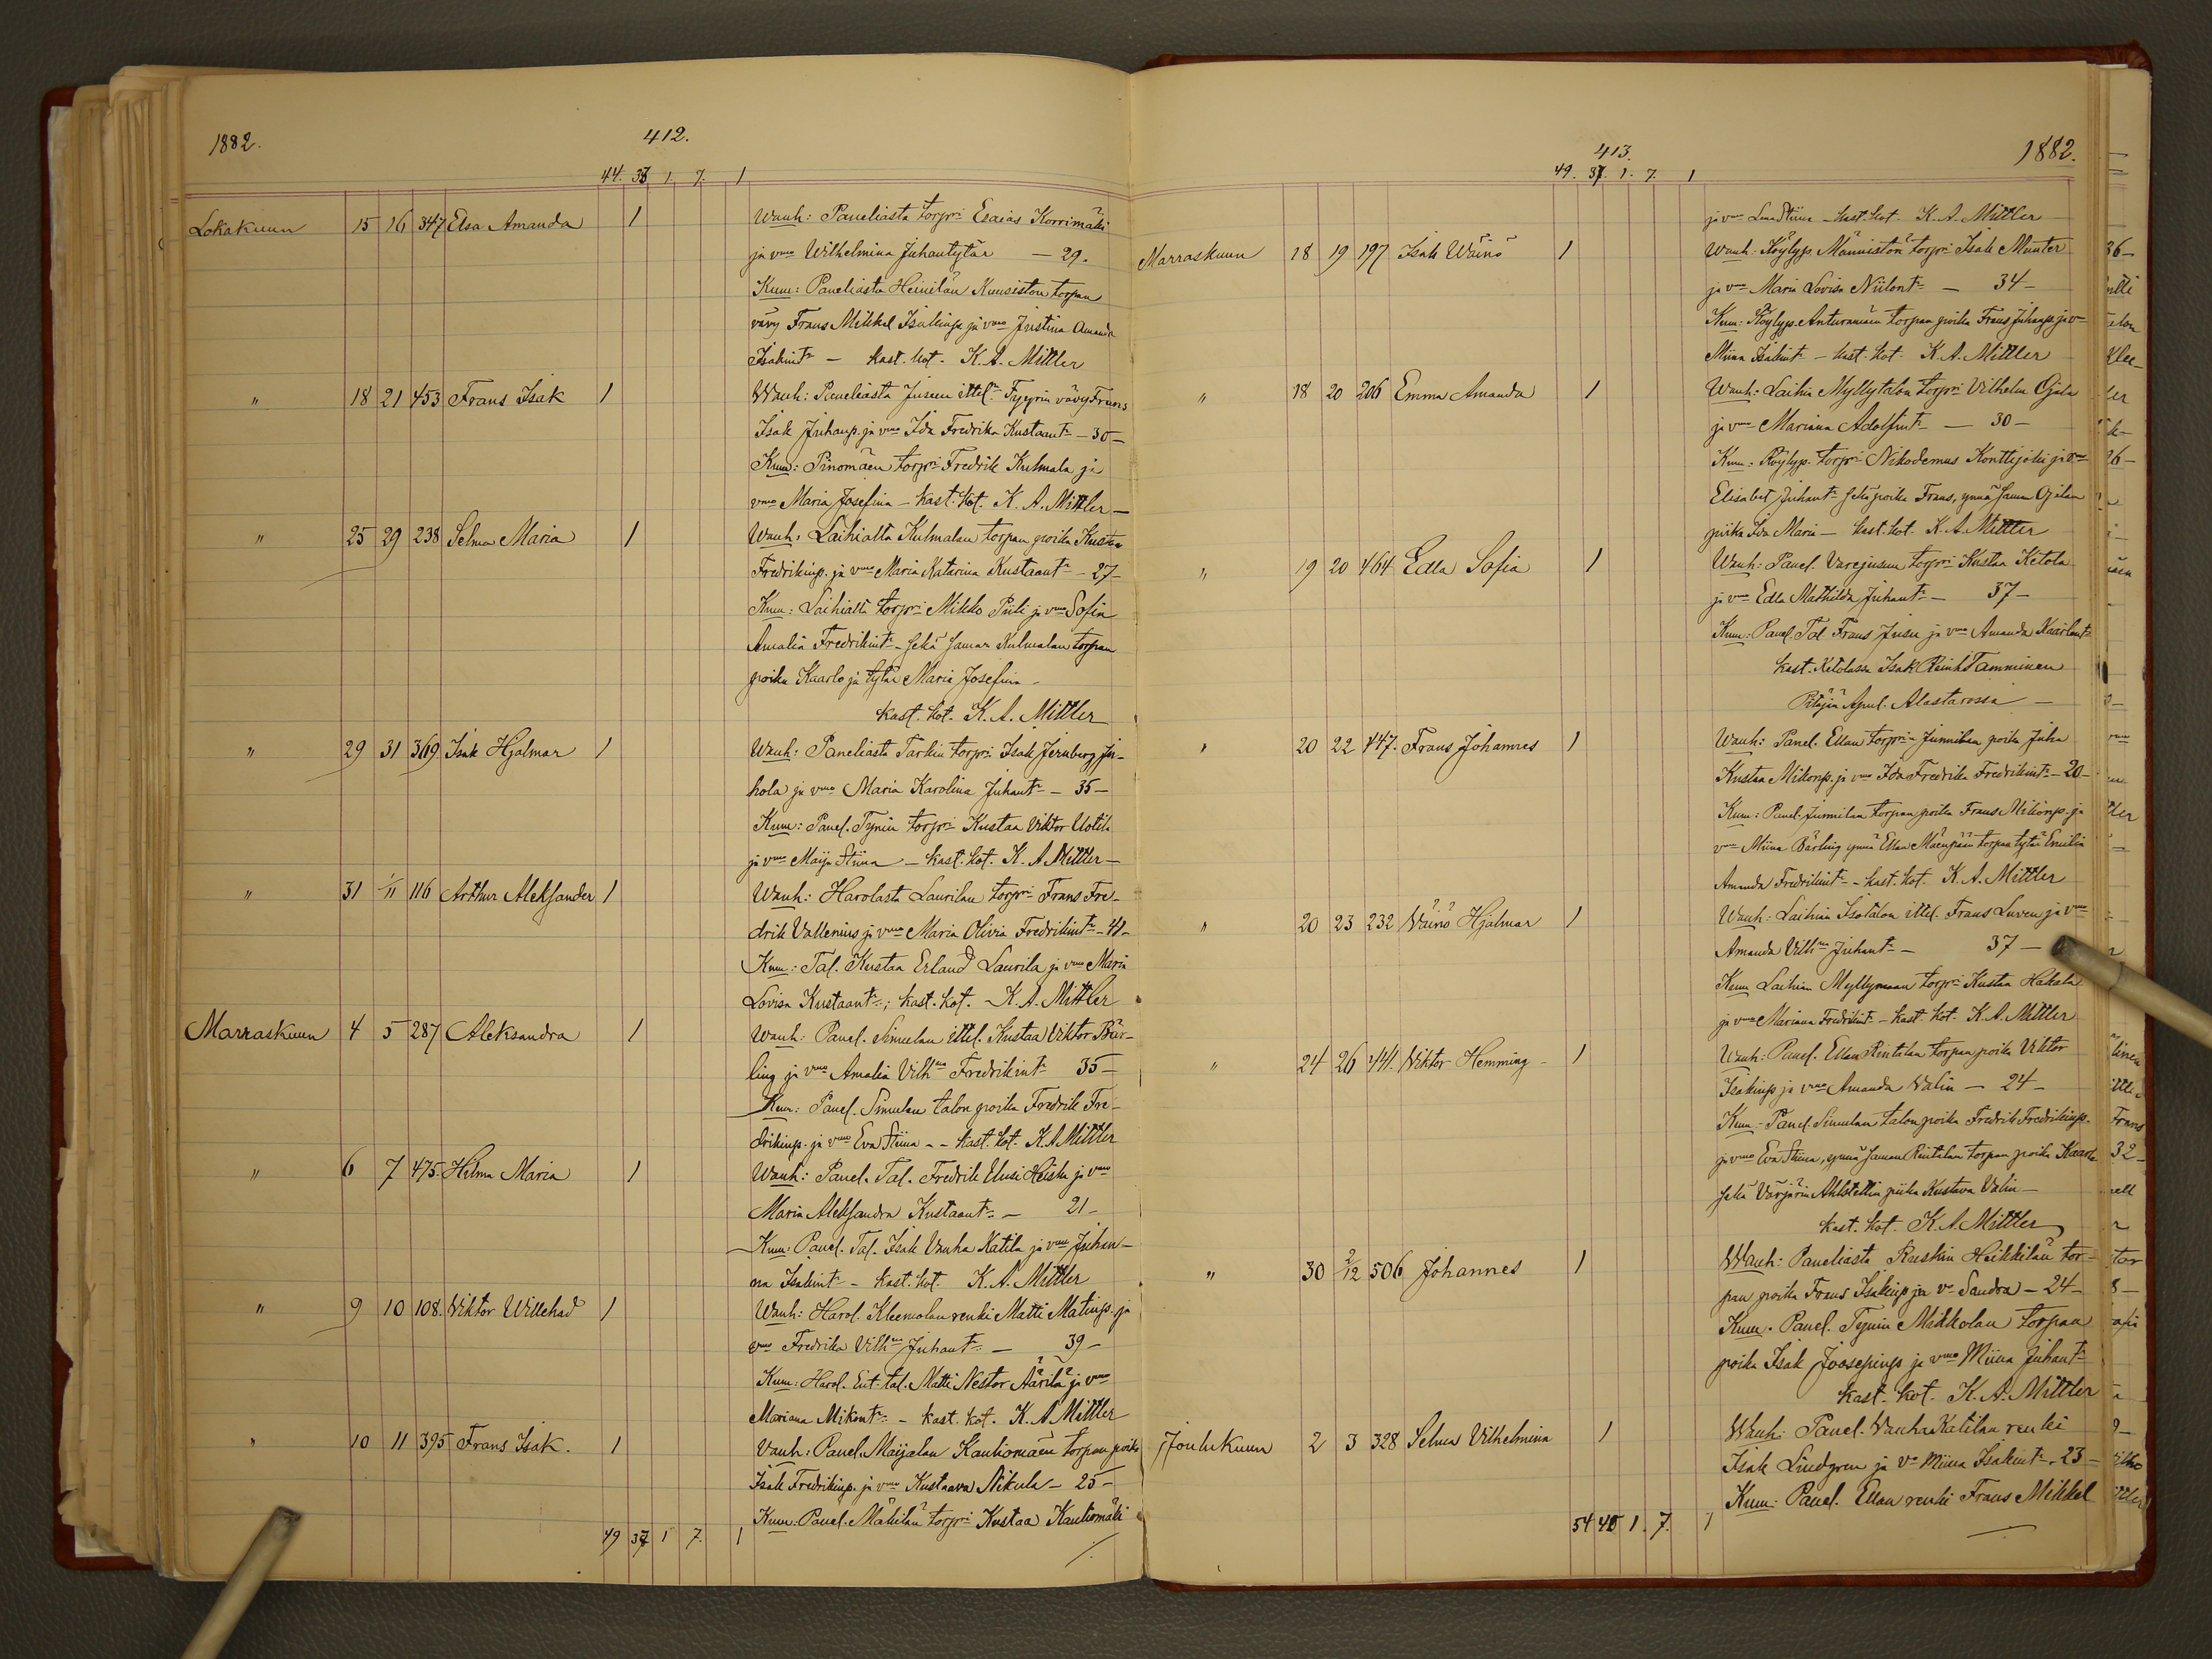 1882.
412.
44. 33 1. 7. 1
Lokakuun 15 16 347 Elsa Amanda 1 Wanh: Paneliasta torpri Esaias Korrimäki
ja vmo Wilhelmina Juhantytär — 29.
Kum: Paneliasta Heinilän Kuusiston torpan
vävy Frans Mikkel Isakinp. ja vmo Justina Amanda
Isakint. — kast. kot. K. A. Mittler
" 18 21 453 Frans Isak 1 Wanh: Paneliasta Jusun ittel. vävy Frans
Isak Juhanp. ja vmo Ida Fredrika Kustaant. — 30 —
Kum: Pinomäen torpri Fredrik Kulmala ja
vmo Maria Josefina — kast. kot. K. A. Mittler —
" 25 29 238 Selma Maria 1 Wanh: Laihialta Kulmalan torpan poika Kustaa
Fredrikinp. ja vmo Maria Katarina Kustaant. — 27 —
Kum: Laihialta torpri Mikko Piili ja vmo Sofia
Amalia Fredrikint. — sekä saman Kulmalan torpan
poika Kaarlo ja tytär Maria Josefina —
kast. kot. K. A. Mittler
" 29 31 369. Isak Hjalmar 1 Wanh: Paneliasta Tarkin torpri Isak Jernberg Ju-
hola ja vmo Maria Karolina Juhant. — 35 —
Kum: Panel. Tynin torpri Kustaa Viktor Uotila
ja vmo Maija Stiina — kast. kot. K. A. Mittler —
" 31 1/11 116 Arthur Aleksander 1 Wanh: Harolasta Laurilan torpri Frans Fre-
drik Vallenius ja vmo Maria Olivia Fredrikint. — 41 —
Kum: Tal. Kustaa Erland Laurila ja vmo Maria
Lovisa Kustaant.; kast. kot. K. A. Mittler
Marraskuun 4 5 287 Aleksandra 1 Wanh: Panel. Simulan ittel. Kustaa Viktor Bär-
ling ja vmo Amalia Vilhna Fredrikint. 35 —
Kum: Panel. Simulan talon poika Fredrik Fre-
drikinp. ja vmo Eva Stiina — kast. kot. K. A. Mittler
" 6 7 475. Hilma Maria 1 Wanh: Panel. Tal. Fredrik Uusi Heiska ja vmo
Maria Aleksandra Kustaant. — 21 —
Kum: Panel. Tal. Isak Vanha Katila ja vmo Juhan-
na Isakint. — kast. kot. K. A. Mittler
" 9 10 108. Viktor Willehad 1 Wanh: Harol. Kleemolan renki Matti Matinp. ja
vmo Fredrika Vilhna Juhant. — 39 —
Kum: Harol. Ent. tal. Matti Nestor Äärilä ja vmo
Mariana Mikont. — kast. kot. K. A. Mittler
" 10 11 395 Frans Isak. 1 Vanh: Panel. Maijalan Kauhiomäen torpan poika
Isak Fredrikinp. ja vmo Kustaava Nikula — 25 —
Kum: Panel. Mäkilän torpri Kustaa Kauhiomäki
49 37 1 7. 1
413.
1882.
49. 37. 1. 7. 1
ja vmo Stiina — kast. kot. K. A. Mittler
Marraskuun 18 19 197 Isak Wäinö 1 Wanh: Köylyp. Männistön torpri Isak Munter
ja vmo Maria Lovisa Niilont. — 34 —
Kum: Köylyp. torpan poika Frans Juhanp. ja v
Miina Isakint. — kast. kot. K. A. Mittler
" 18 20 206 Emma Amanda 1 Wanh: Laihia Myllytalon torpri Vilhelm Ojala
ja vmo Mariana Adolfint. — 30 —
Kum: Köylyp. torpri Nikodemus Konttijoki ja vmo
Elisabet Juhant. sekä poika Frans, ynnä saman Ojalan
piika Ida Maria — kast. kot. K. A. Mittler
" 19 20 464 Edla Sofia 1 Wanh: Panel. Varejusun torpri Kustaa Ketola
ja vmo Edla Mathilda Juhant. — 37 —
Kum: Panel. Tal Frans Jusu ja vmo Amanda Kaarlont.
kast. Ketolassa Isak Reinh. Tamminen
Pitäjän Apul. Alastarossa —
" 20 22 447. Frans Johannes 1 Wanh: Panel. Ellan torprin Junnilan poika Juha
Kustaa Mikonp. ja vmo Ida Fredrika Fredrikint. — 20 —
Kum: Panel. Junnilan torpan poika Frans Mikonp. ja
vmo Miina Bärling ynnä Ellan Mäenpään torpan tytär Emilia
Amanda Fredrikint. — kast. kot. K. A. Mittler
" 20 23 232 Väinö Hjalmar 1 Wanh: Laihian Isotalon ittel. Frans Luven ja vmo
Amanda Vilhna Juhant. — 37 —
Kum Laihian Myllymaan torpri Kustaa Hakala
ja vmo Mariana Fredrikint. — kast. kot. K. A. Mittler
" 24 26 441. Viktor Hemming 1 Wanh: Panel. Ellan Rintalan torpan poika Viktor
Isakinp. ja vmo Amanda Walin — 24 —
Kum: Panel. Simulan talon poika Fredrik Fredrikinp.
ja vmo Eva Stiina, ynnä saman Rintalan torpan poika Kaarlo
sekä Värjärin Ahlstettin piika Kustava Valin —
kast. kot. K. A. Mittler
" 30 2/12 506 Johannes 1 Wanh: Paneliasta Raskin Heikkilän tor-
pan poika Frans Isakinp. ja vo Sandra — 24 —
Kum. Panel. Tynin Mikkolan torpan
poika Isak Joosepinp. ja vmo Miina Juhant.
kast. kot. K. A. Mittler
Joulukuun 2 3 328 Selma Vilhelmina 1 Wanh: Panel. Vanhan Katilan renki
Isak Lindgren ja vo Miina Isakint. — 23 —
Kum: Panel. Ellan renki Frans Mikkel
54 40 1. 7. 1